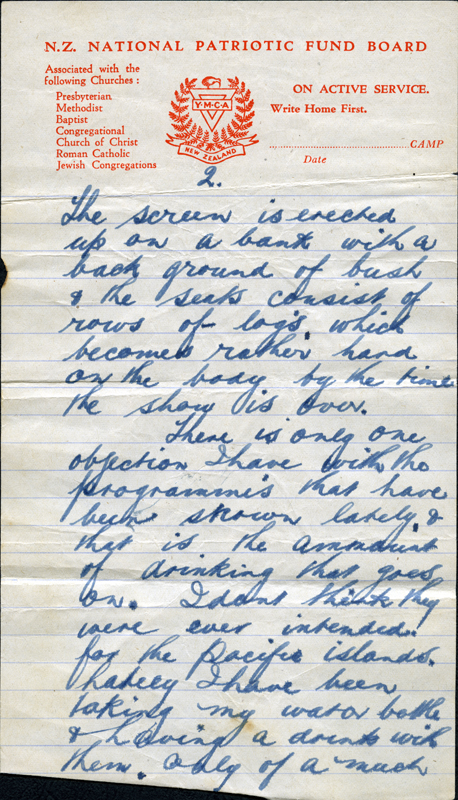 N.Z. NATIONAL PATRIOTIC FUND BOARD
Associated with the
following Churches :
Presbyterian
Methodist
Baptist
Congregational
Church of Christ
Roman Catholic
Jewish Congregations
Y·M·C·A
NEW ZEALAND
ON ACTIVE SERVICE.
Write Home First.
CAMP
Date
2.
The screen is erected
up on a bank with a
back ground of bush
& the seats consist of
rows of logs, which
becomes rather hard
on the body by the time
the show is over.
There is only one
objection I have with the
programmes that have
been shown lately &
that is the ammount
of drinking that goes
on. I dont think they
were ever intended
for the Pacific islands.
Lately I have been
taking my water bottle
& having a drink with
them. Only of a much